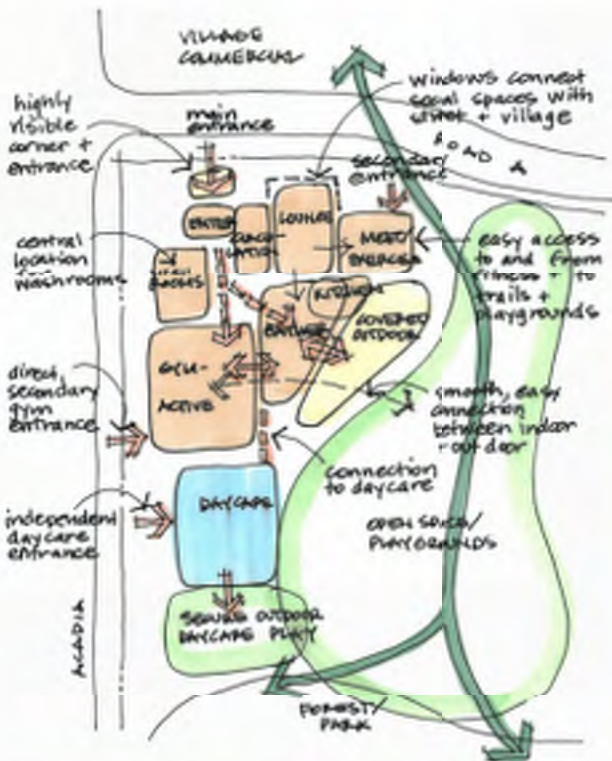 VILLAGE
COMMERCIAL
highly
visible
corner +
entrance
main
entrance
windows connect
social spaces with
street + village
ROAD A
secondary
entrance
ENTER
LOUNGE
MEET/
EXERCISE
easy access
to and from
fitness + to
trails +
playgrounds
central
location
for
washrooms
ROOMS
KITCHEN
COVERED
OUTDOOR
GYM-
ACTIVE
direct,
secondary
gym
entrance
smooth, easy
connection
between indoor
+ outdoor
connection
to daycare
DAYCARE
independent
daycare
entrance
OPEN SPACE/
PLAYGROUNDS
SECURE OUTDOOR
DAYCARE PLAY
ACADIA
FOREST/
PARK